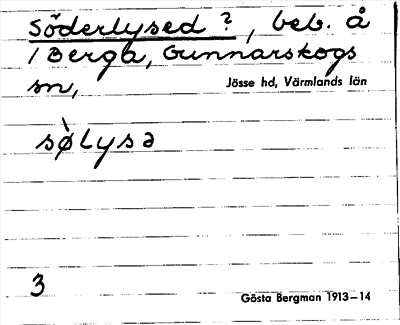 Söderlysed ?, beb. å
1 Berga, Gunnarskogs
sn, Jösse hd, Värmlands län
sø̀lysə
3
Gösta Bergman 1913–14